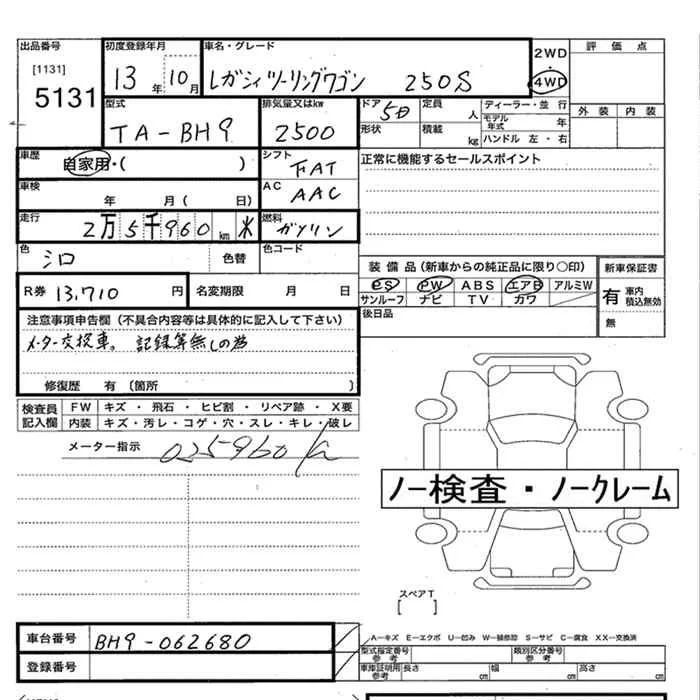 出品番号 初度登録年月 車名・グレード 2WD 評価点
[1131] 5131 13年 10月 レガシィツーリングワゴン 250S ・ 4WD
型式 排気量又はkw ドア 5D 定員 人 ディーラー・並行 外装 内装
TA-BH9 2500 形状 積載 kg モデル年式 年 ハンドル 左・右
車歴 自家用・( ) シフト FAT 正常に機能するセールスポイント
車検 年 月( 日) AC AAC
走行 2万5千960km 燃料 ガソリン
色 シロ 色替 色コード 装備品(新車からの純正品に限り○印) 新車保証書
R券 13,710円 名変期限 月 日 PS PW ABS エアB アルミW 有 車内積込無効
サンルーフ ナビ TV カワ
注意事項申告欄(不具合内容等は具体的に記入して下さい) 後日品 無
メーター交換車。 記録等無しの為
修復歴 有〔箇所 〕
検査員記入欄 FW キズ・飛石・ヒビ割・リペア跡・X要
内装 キズ・汚レ・コゲ・穴・スレ・キレ・破レ
メーター指示 025960
ノー検査・ノークレーム
スペアT
[ ]
車台番号 BH9-062680 A―キズ E―エクボ U―凹み W―補修跡 S―サビ C―腐食 XX―交換済
登録番号 型式指定番号 参考 類別区分番号 参考
車庫証明用 参考 長さ cm 幅 cm 高さ cm